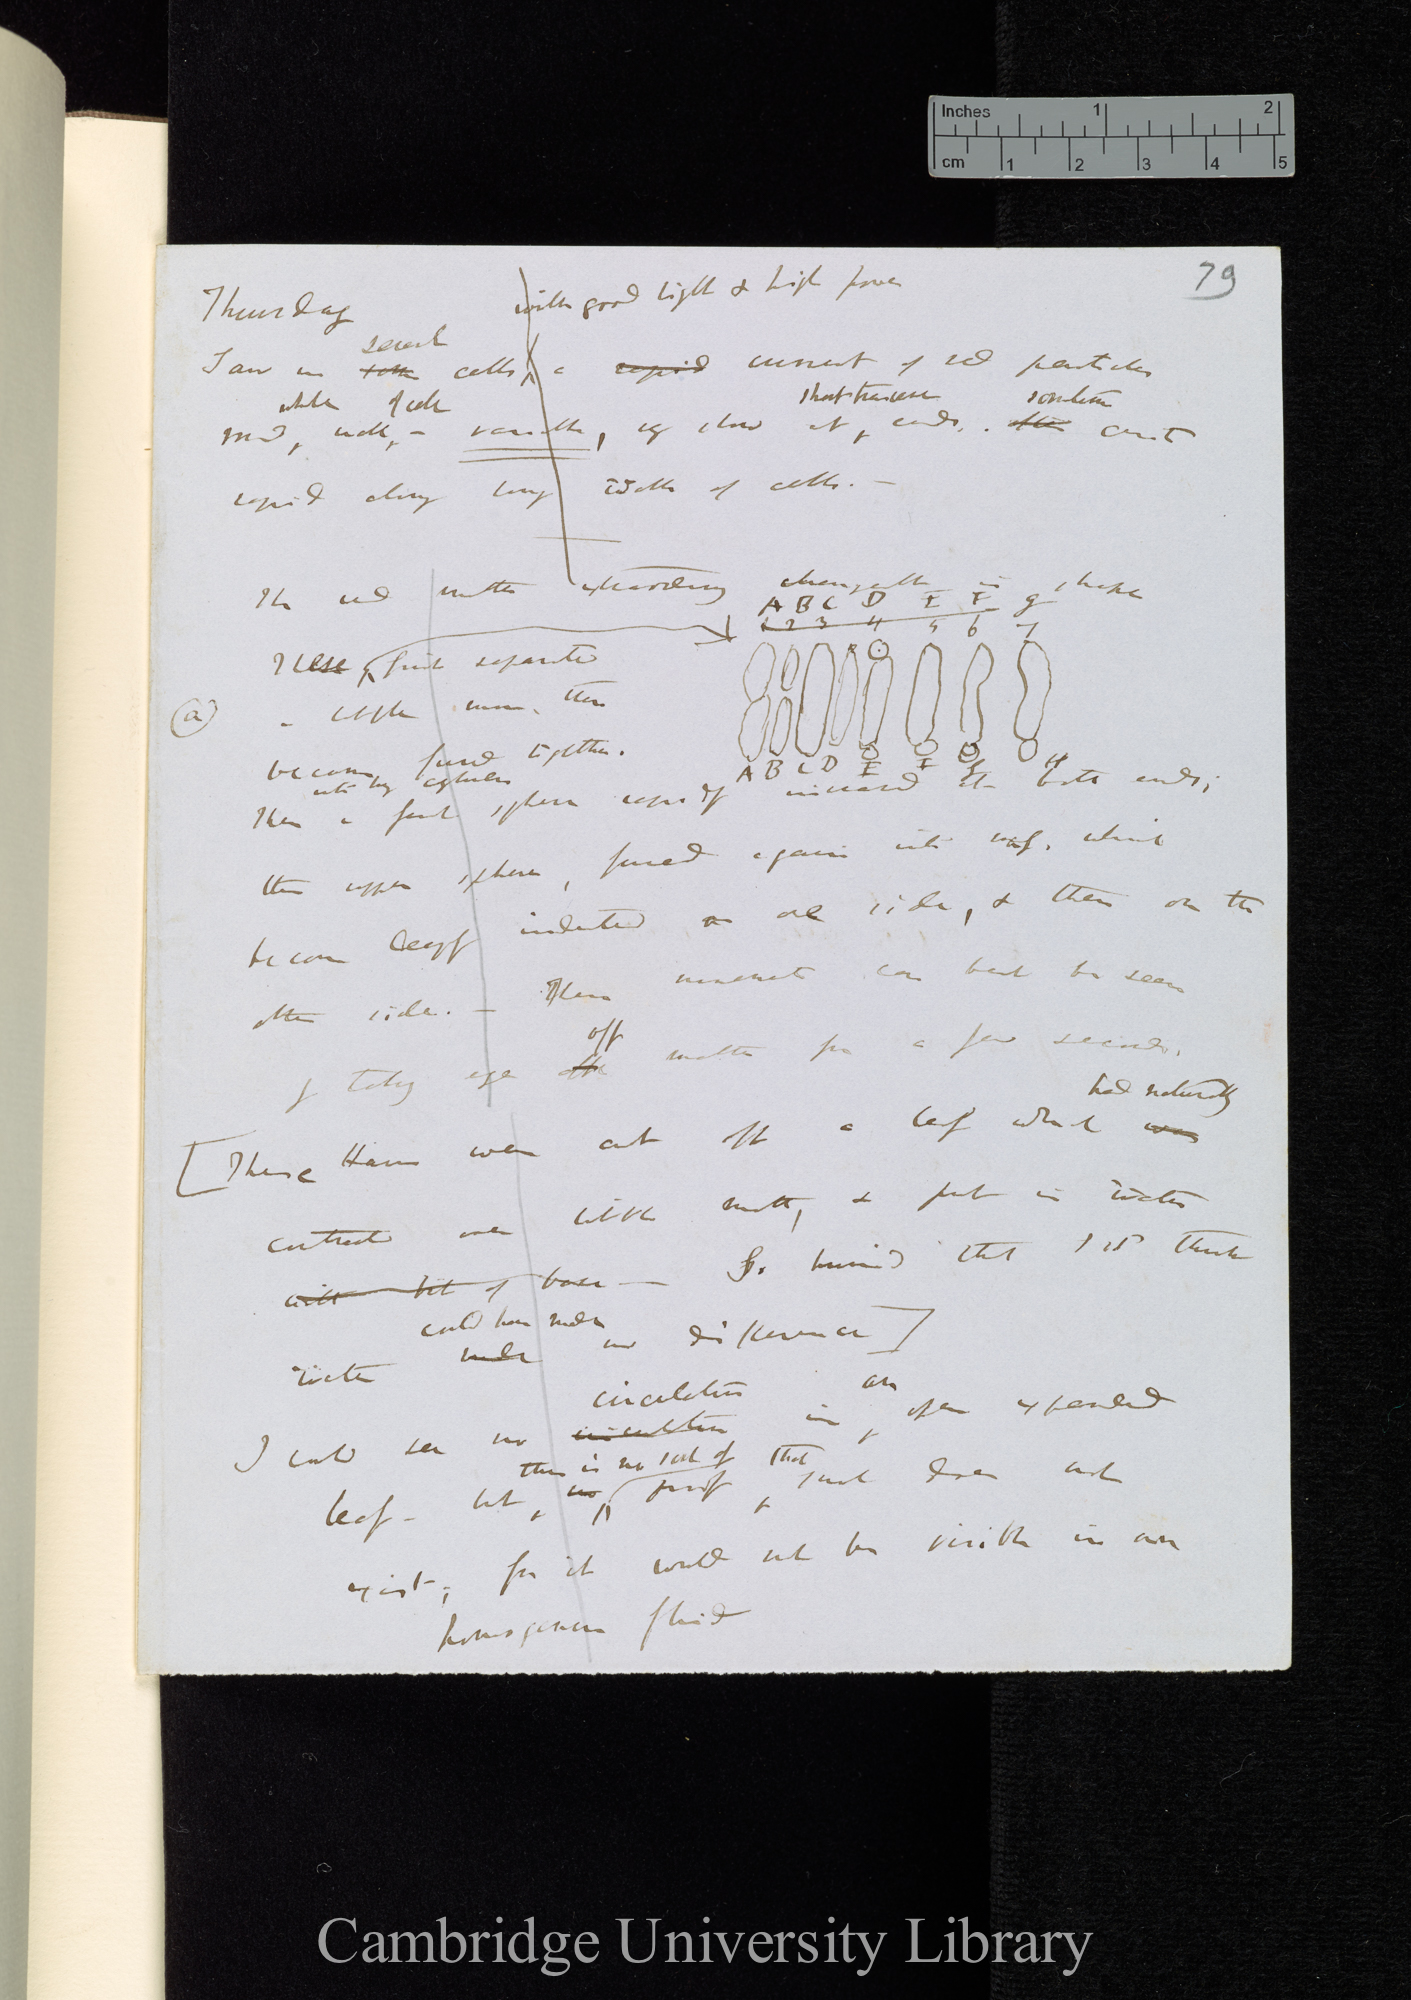 Inches 1 2
cm 1 2 3 4 5
79
Thursday with good light & high power
several
Saw in cells, a rapid current of red particles
whole of cell short transverse sometimes
round, walls, — variable, eg slow at, ends. current
rapid along long walls of cells. —
The red matter extraordinary changeable in shape
A B C D E F g
1 2 3 4 5 6 7
These first separate
(a) a little more, then
become fused together.
A B C D E F g H
into big cylinder
Then a small sphere rapidly increased at both ends;
the upper sphere, fused again into mass, which
became deeply indented on one side, & then on the
other side. — These movements can best be seen
off
by taking eye the matter for a few seconds.
had naturally
[These Hairs were cut off a leaf which was
contracted over little moth, & put in water
with bit of base — So humid that I shd think
could have made
water made no difference]
circulation an
I could see no circulation in, open expanded
there is no sort of that
leaf — but, no, proof, such does not
exist; for it would not be visible in an
homogeneous fluid
Cambridge University Library